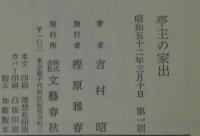 亭主の家出
昭和五十二年三月十日 第一刷
著者 吉村昭
発行者 樫原雅春
発行所 株式会社 文藝春秋
〒一〇二
東京都千代田区紀尾井町三
本文印刷 理想社印刷
カバー印刷 凸版印刷
製本 加藤製本